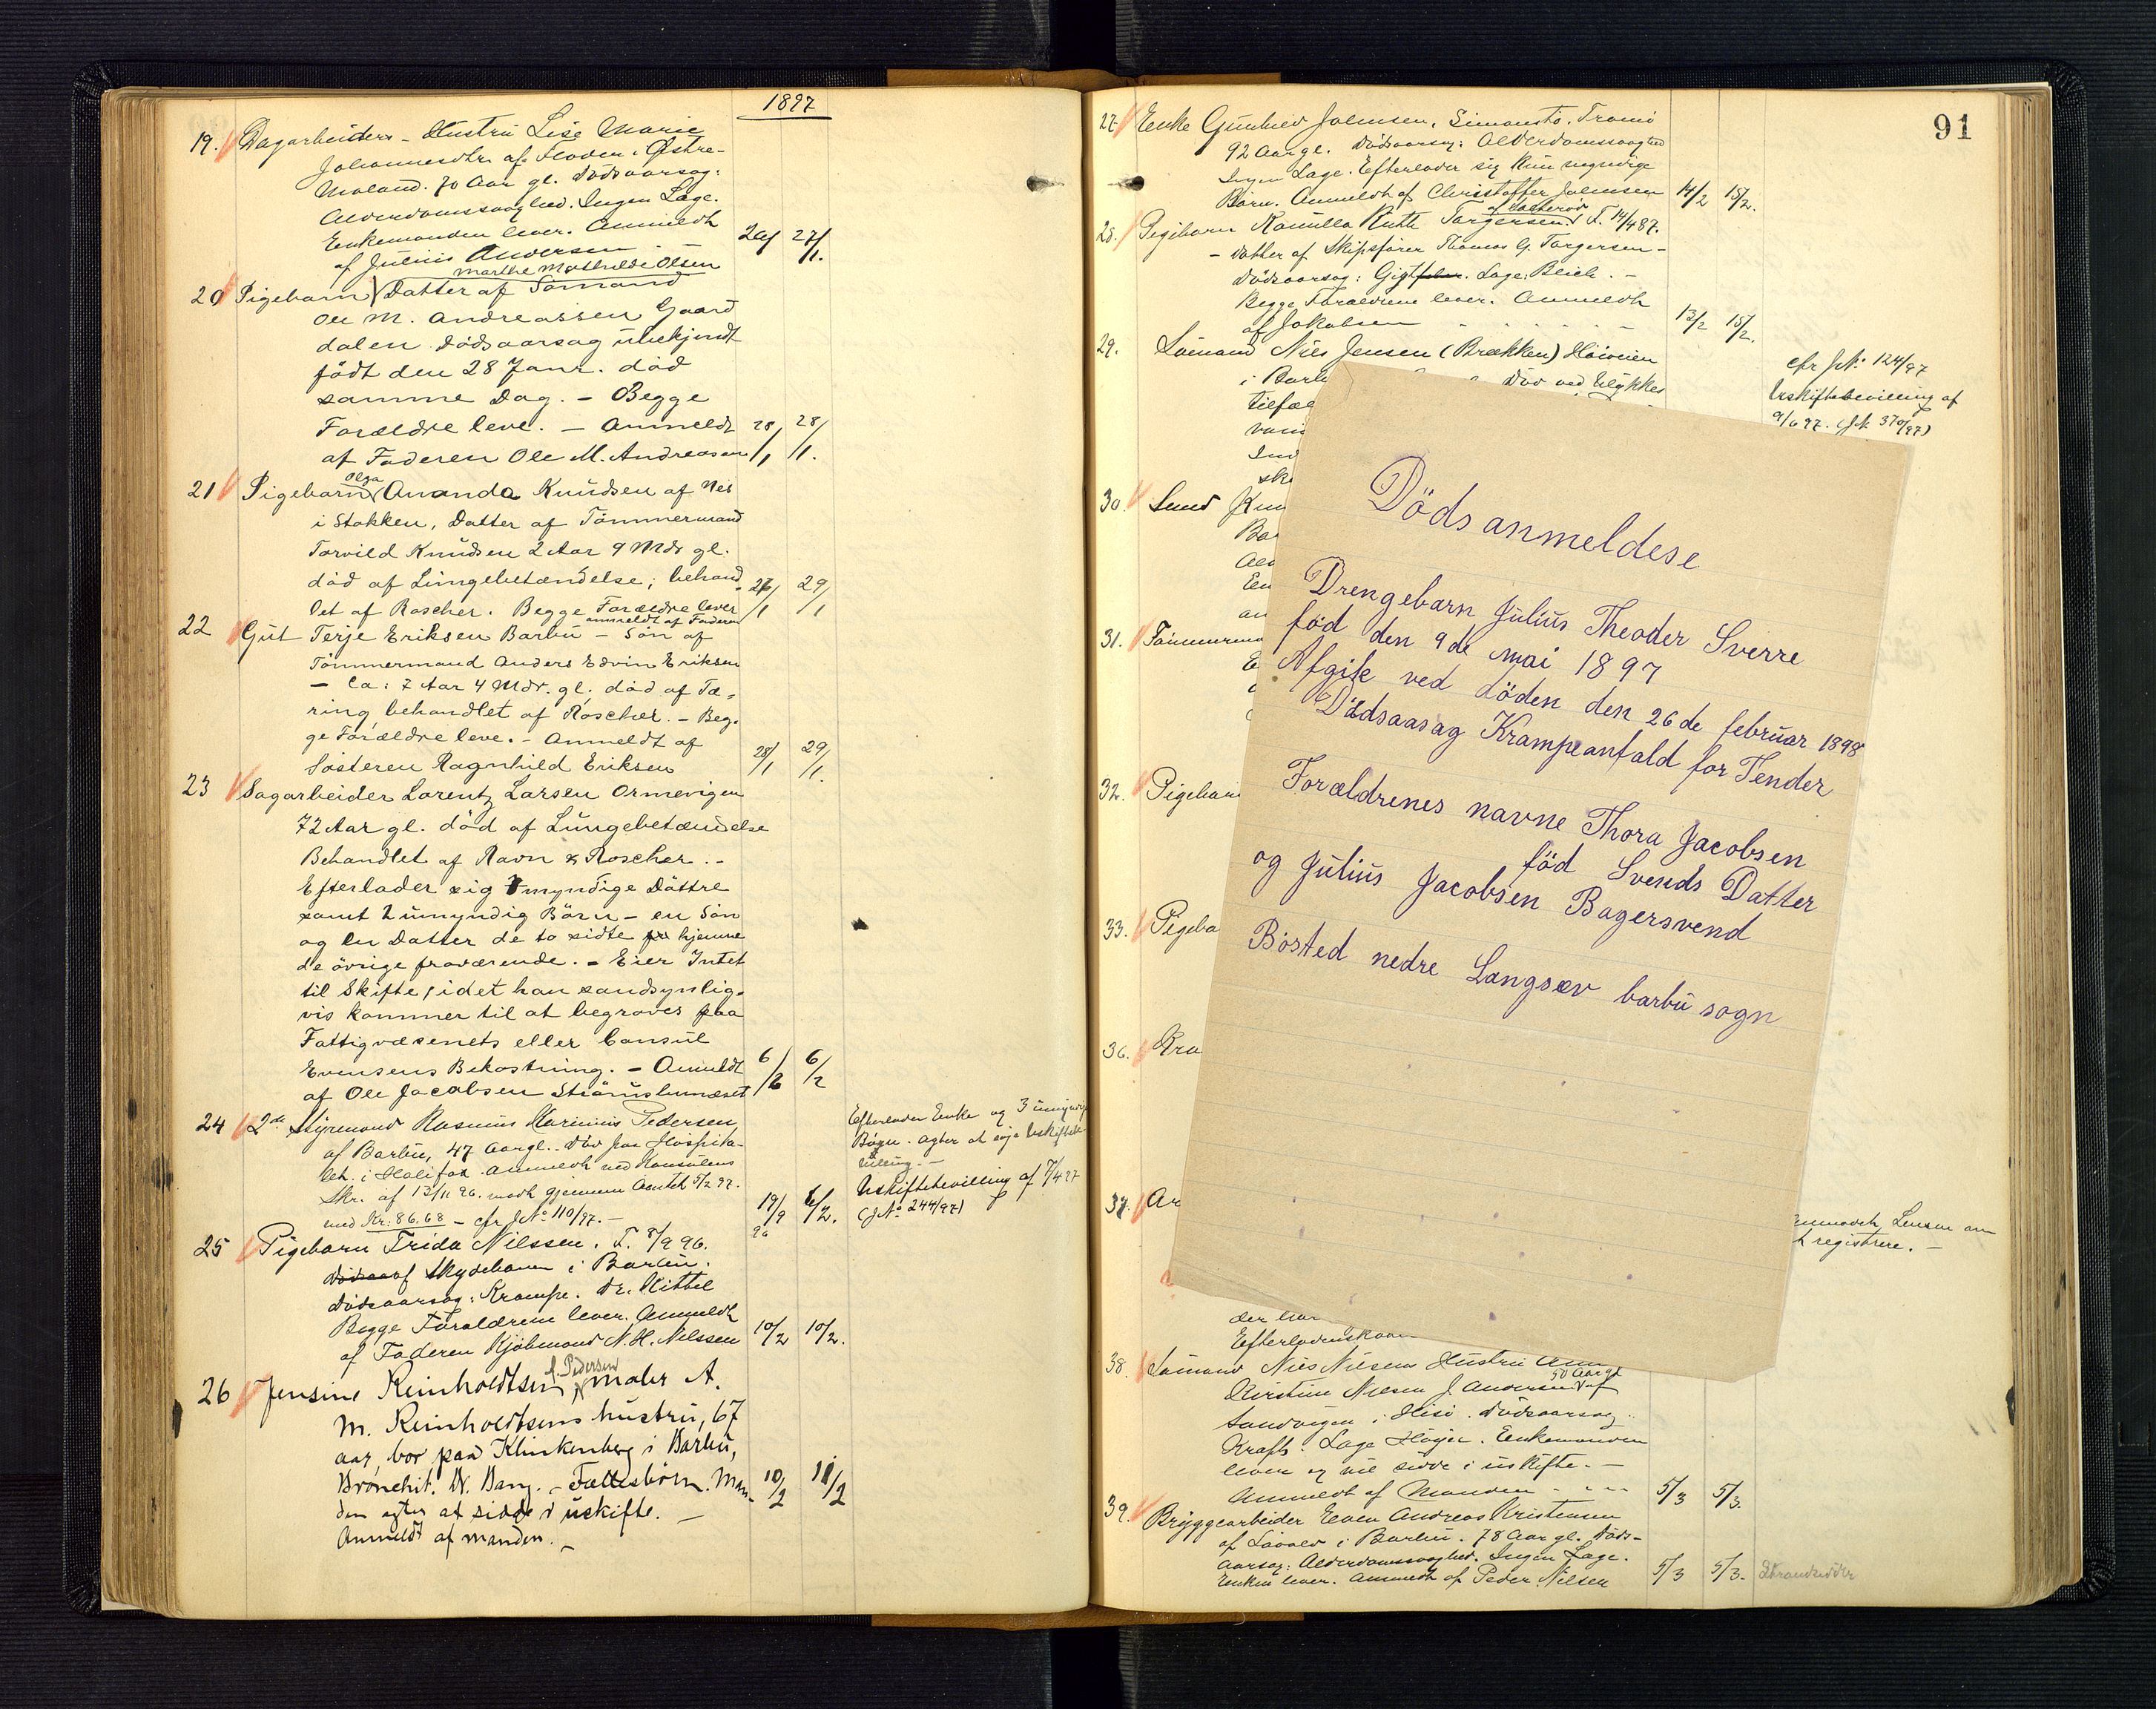 1897
19. Dagarbeiders Hustru Lise Marie
Johannesdtr. af Floden i Østre-
Moland. 70 Aar gl. Dødsaarsag:
Alderdomssvaghed. Ingen Læge.
Enkemanden lever. Anmeldt
af Julius Andersen
26/1 27/1.
Marthe Mathilde Olsen
20 Pigebarn Datter af Sømand
Ole M. Andreassen Gaard
dalen Dødsaarsag ubekjendt
født den 28 Janr. død
samme Dag. - Begge
Forældre leve. - Anmeldt
af Faderen Ole M. Andreasen
28/1 28/1.
Olga
21 Pigebarn Amanda Knudsen af Nes
i Stokken, Datter af Tömmermand
Torvild Knudsen 2 Aar 9 Mdr gl.
död af Lungebetændelse; behand
let af Roscher. Begge Forældre lever
anmeldt af Faderen
26/1 29/1
22 Gut Terje Eriksen Barbu - Sön af
Tömmermand Anders Edvin Eriksen
- Ca: 7 Aar 4 Mdr. gl; död af Tæ-
ring behandlet af Roscher. - Beg-
ge Forældre leve. - Anmeldt af
Søsteren Ragnhild Eriksen
28/1 29/1.
23 Sagarbeider Lorentz Larsen Ormevigen
72 Aar gl. död af Lungebetændelse
Behandlet af Ravn & Roscher. -
Efterlader sig myndige Döttre
samt 2 umyndig Börn - en Sön
og en Datter de to sidte hjemme
de övrige fraværende. - Eier Intet
til Skifte, idet han sandsynlig-
vis kommer til at begraves paa
Fattigvæsenets eller Consul
Evensens Bekostning. - Anmeldt
af Ole Jacobsen Strömsbunæset
6/2 6/2
24 2den Styrmand Rasmus Marinius Pedersen
af Barbu, 47 Aar gl. Död paa Hospita-
let i Halifax. Anmeldt ved Konsulens
Skr. af 13/11 96. modt gjennem Amtet 5/2 97.
med Kr: 86.68 - cfr J No 110/97. -
19/9 96 6/2.
Efterlader Enke og 3 umyndige
Børn. Agter at søge Uskiftebe-
villing. -
Uskiftebevilling af 7/4 97
(J No 244/97)
25 Pigebarn Frida Nilssen. F. 8/9 96.
af Skydebanen i Barbu.
Dødsaarsag: Krampe. Dr. Kittel
Begge Forældrene lever. Anmeldt
af Faderen Kjøbmand N. H. Nilssen
10/2 10/2.
26 Jensine Reinholdtsen f. Pedersen, maler A.
M. Reinholdtsens hustru, 67
aar, bor paa Klinkenberg i Barbu,
Bronchit. Dr. Bang. - Fællesbörn. Man-
den agter at sidde i uskifte. -
Anmeldt af manden. -
10/2 11/2
91
27. Enke Gunhild Johnsen, Simonstø, Tromø
92 Aar gl. Dødsaarsag: Alderdomssvaghed
Ingen Læge. Efterlader sig kun myndige
Børn. Anmeldt af Christoffer Johnsen
14/2 15/2.
28. Pigebarn Kamilla Ruth Torgersen F. 14/4 87.
- Datter af Skipsfører Thomas G. Torgersen -
Dødsaarsag: Gigtfeber. Læge: Bleich. -
Begge Forældrene lever. Anmeldt
af Jakobsen
13/2 15/2.
29. Sømand Nils Jensen (Brækken)
i Barb Død ved Ulykkes
tilfæl
cfr J No 124/97
Uskiftebevilling af
9/6 97. (J No 370/97)
30.
31. Tömmerma
32. Pigebar
33. Pigeba
36. Kra
37. Ar
Dödsanmeldese
Drengebarn Julius Theoder Sverre
föd den 9de mai 1897
Afgik ved döden den 26de februar 1898
Dödsaasag Krampeanfald for Tender
Forældrenes navne Thora Jacobsen
föd Svends Datter
og Julius Jacobsen Bagersvend
Bosted nedre Langsæv barbu sogn
Lensm. om
registrere. -
38. Sømand Nils Nilsens Hustru
Kirstine Nilsen f. Andersen 50 Aar gl af
Sandvigen i Hisø. Dødsaarsag:
Kræft. Læge Høyer. Enkemanden
lever og vil sidde i uskifte. -
Anmeldt af Manden - - -
5/3 5/3.
39. Bryggearbeider Even Andreas Kristensen
af Løvold i Barbu. 78 Aar gl. Døds-
aarsag: Alderdomssvaghed. Ingen Læge.
Enken lever. Anmeldt af Peder Nilsen
5/3 5/3. Strandsidder